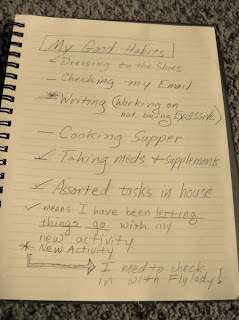 My Good Habits
✓ Dressing to the Shoes
– Checking my Email
* Writing (Working on
not being Excessive)
– Cooking Supper
✓ Taking meds + Supplements
✓ Assorted tasks in house
✓ means I have been letting
things go with my
new activity
* New Activity
→ I need to check
in with Flylady!